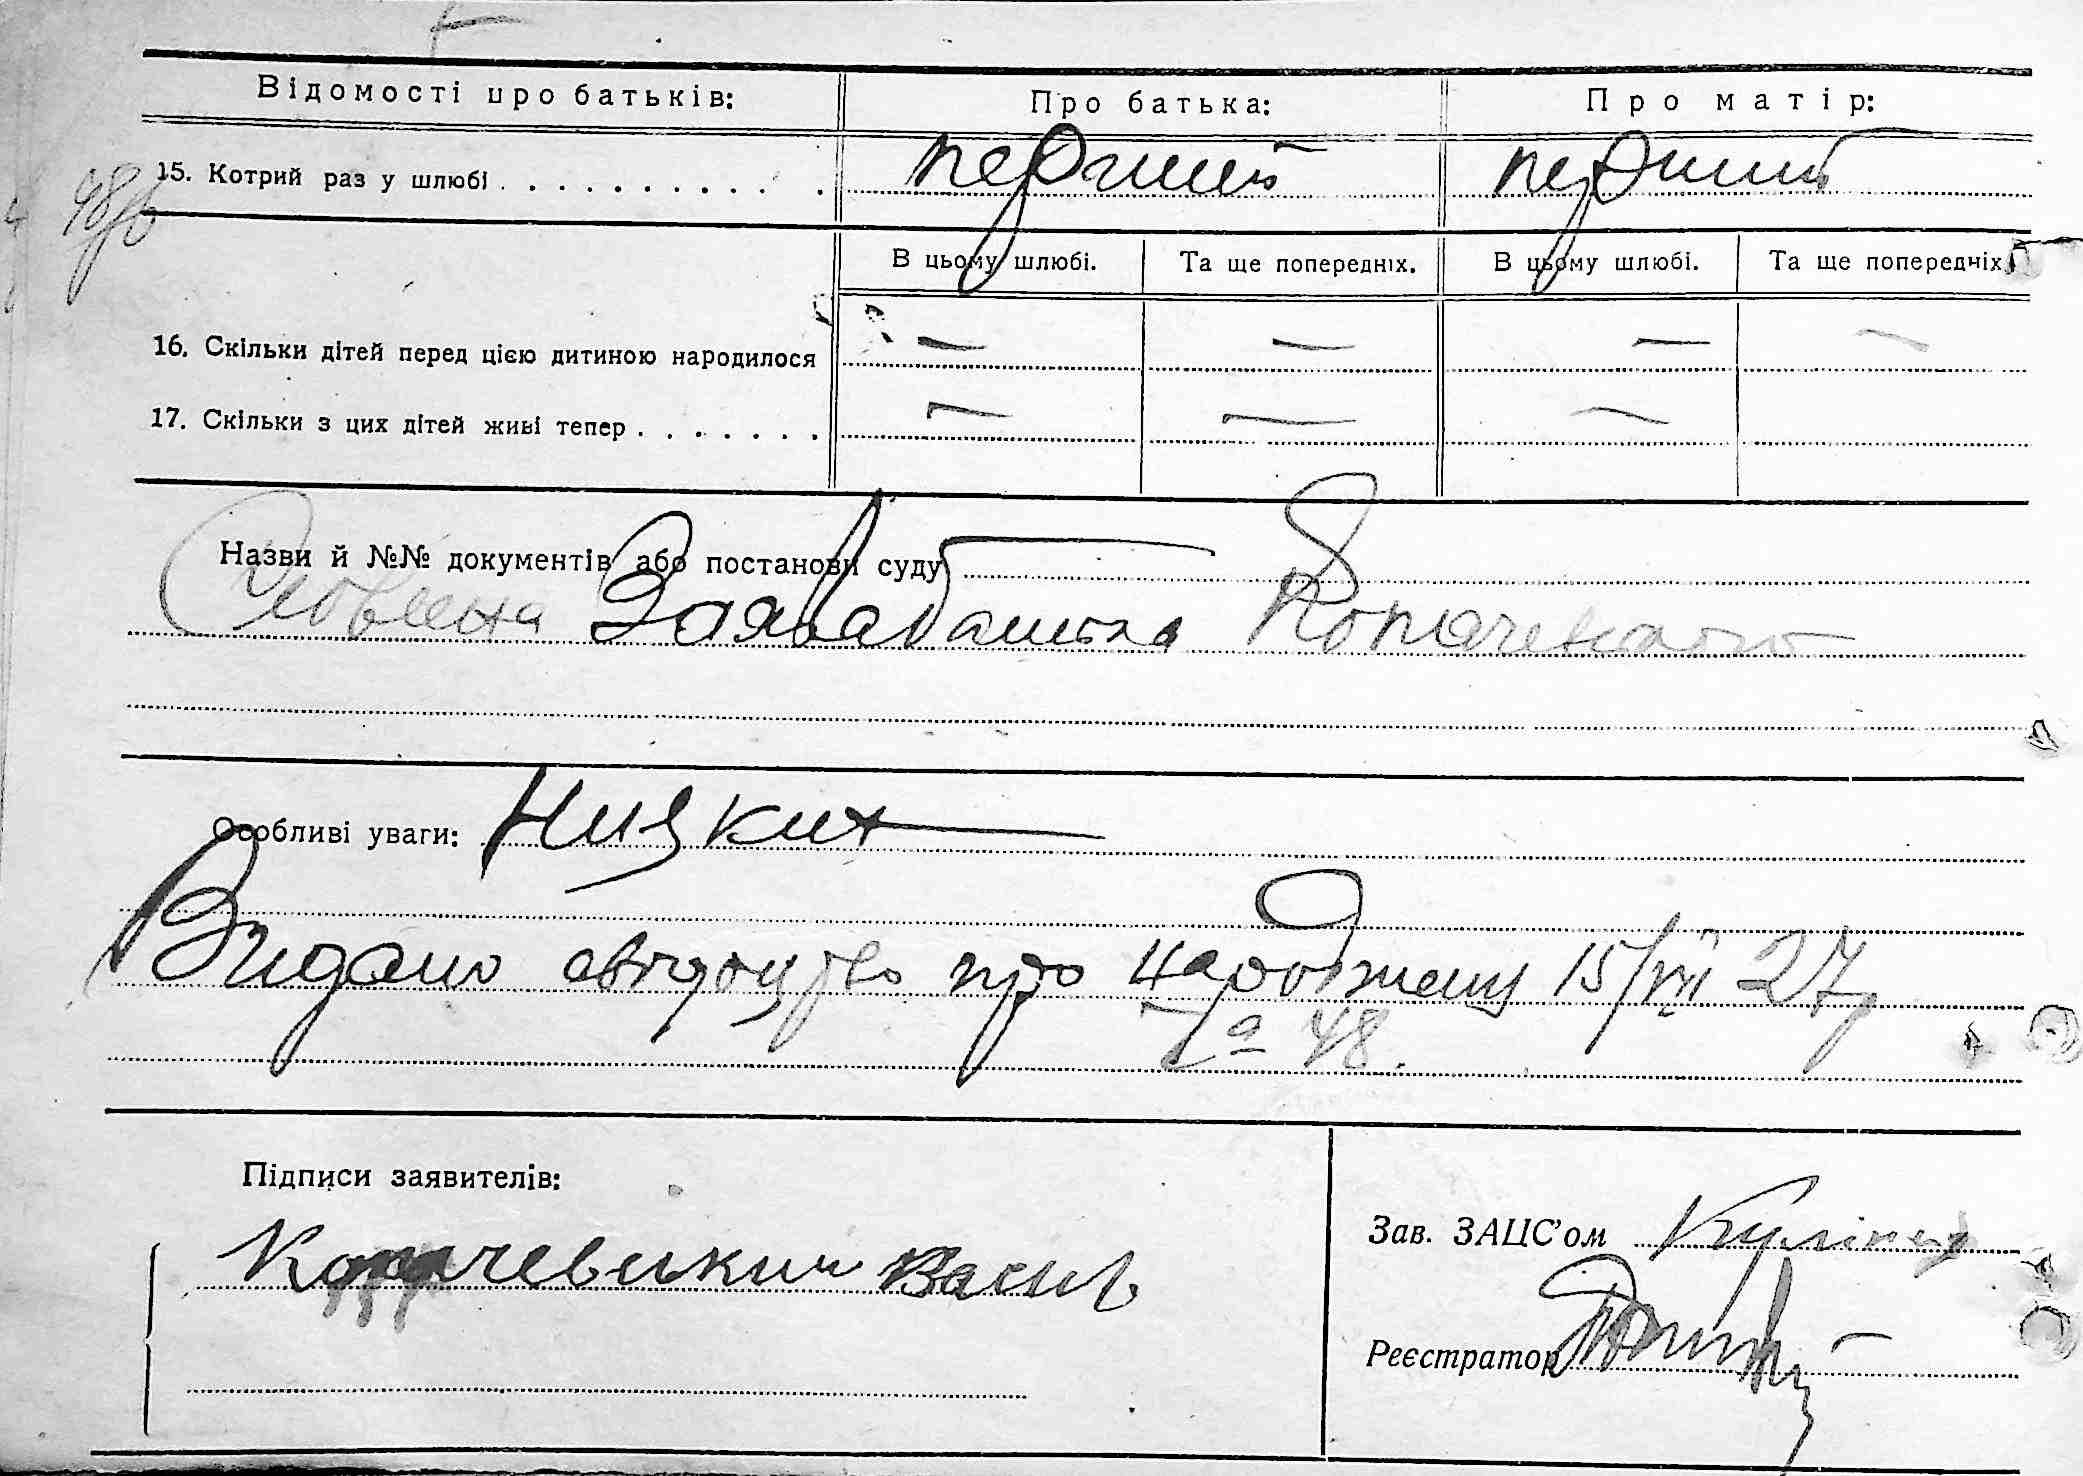 Відомості про батьків: Про батька: Про матір:
15. Котрий раз у шлюбі . . . . . . . . . . . . перший перший
В цьому шлюбі. Та ще попередніх. В цьому шлюбі. Та ще попередніх.
16. Скільки дітей перед цією дитиною народилося — — — —
17. Скільки з цих дітей живі тепер . . . . . . . — — —
Назви й №№ документів або постанови суду
Словесна Заява батька
Особливі уваги: Ніяких
Видано свідоцтво про народження 15/VII 27
За 48.
Підписи заявителів:
Зав. ЗАЦС'ом
Василь
Реєстратор